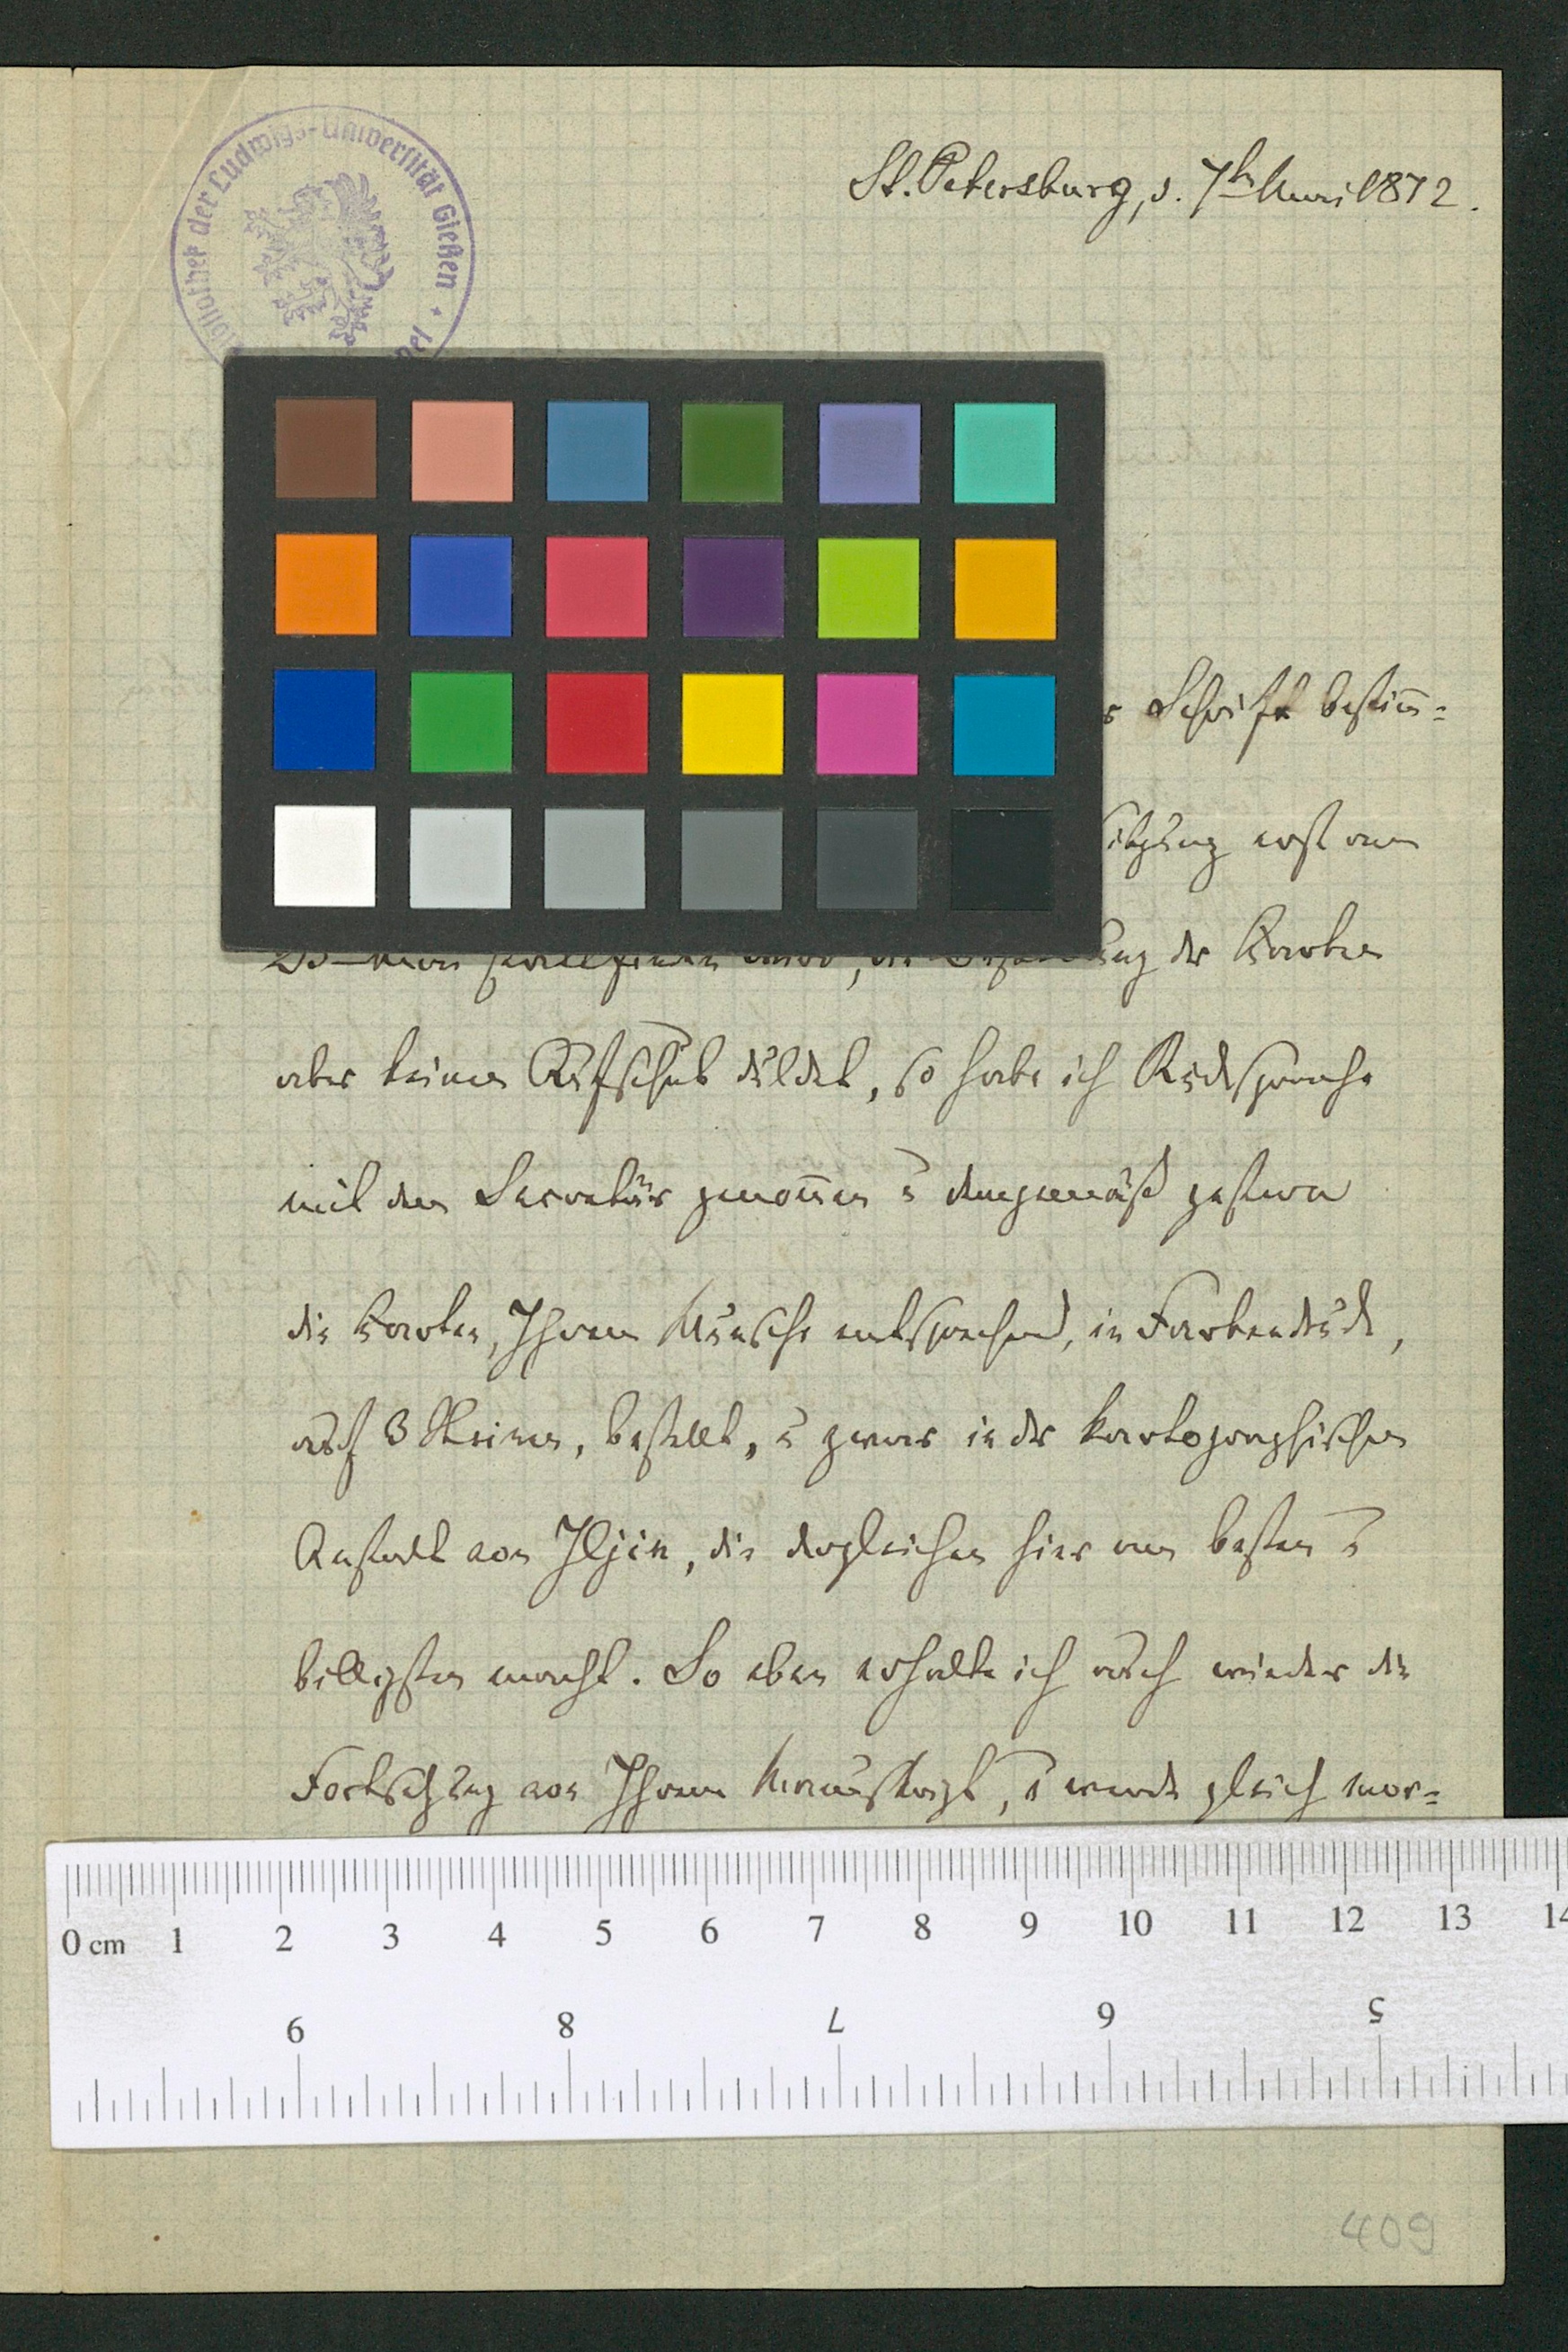 Bibliothek der Ludwigs-Universität Gießen *
St. Petersburg, d. 7t. 1872.
Schrift bestim̄=
erst am
der Karten
aber keinen Aufschub duldet, so habe ich Rücksprache
mit dem Secretär genom̄en u demgemäß gestern
die Karten, Ihrem Wunsche entsprechend, in Farbendruck,
auf 3 Steinen, bestellt, u zwar in der kartographischen
Anstalt von Iljin, die dergleichen hier am besten u
billigsten macht. So eben erhalte ich auch wieder die
Fortsetzung von Ihrem Manuskript, u werde gleich mor=
0 cm 1 2 3 4 5 6 7 8 9 10 11 12 13 14
9 8 7 6 5
409